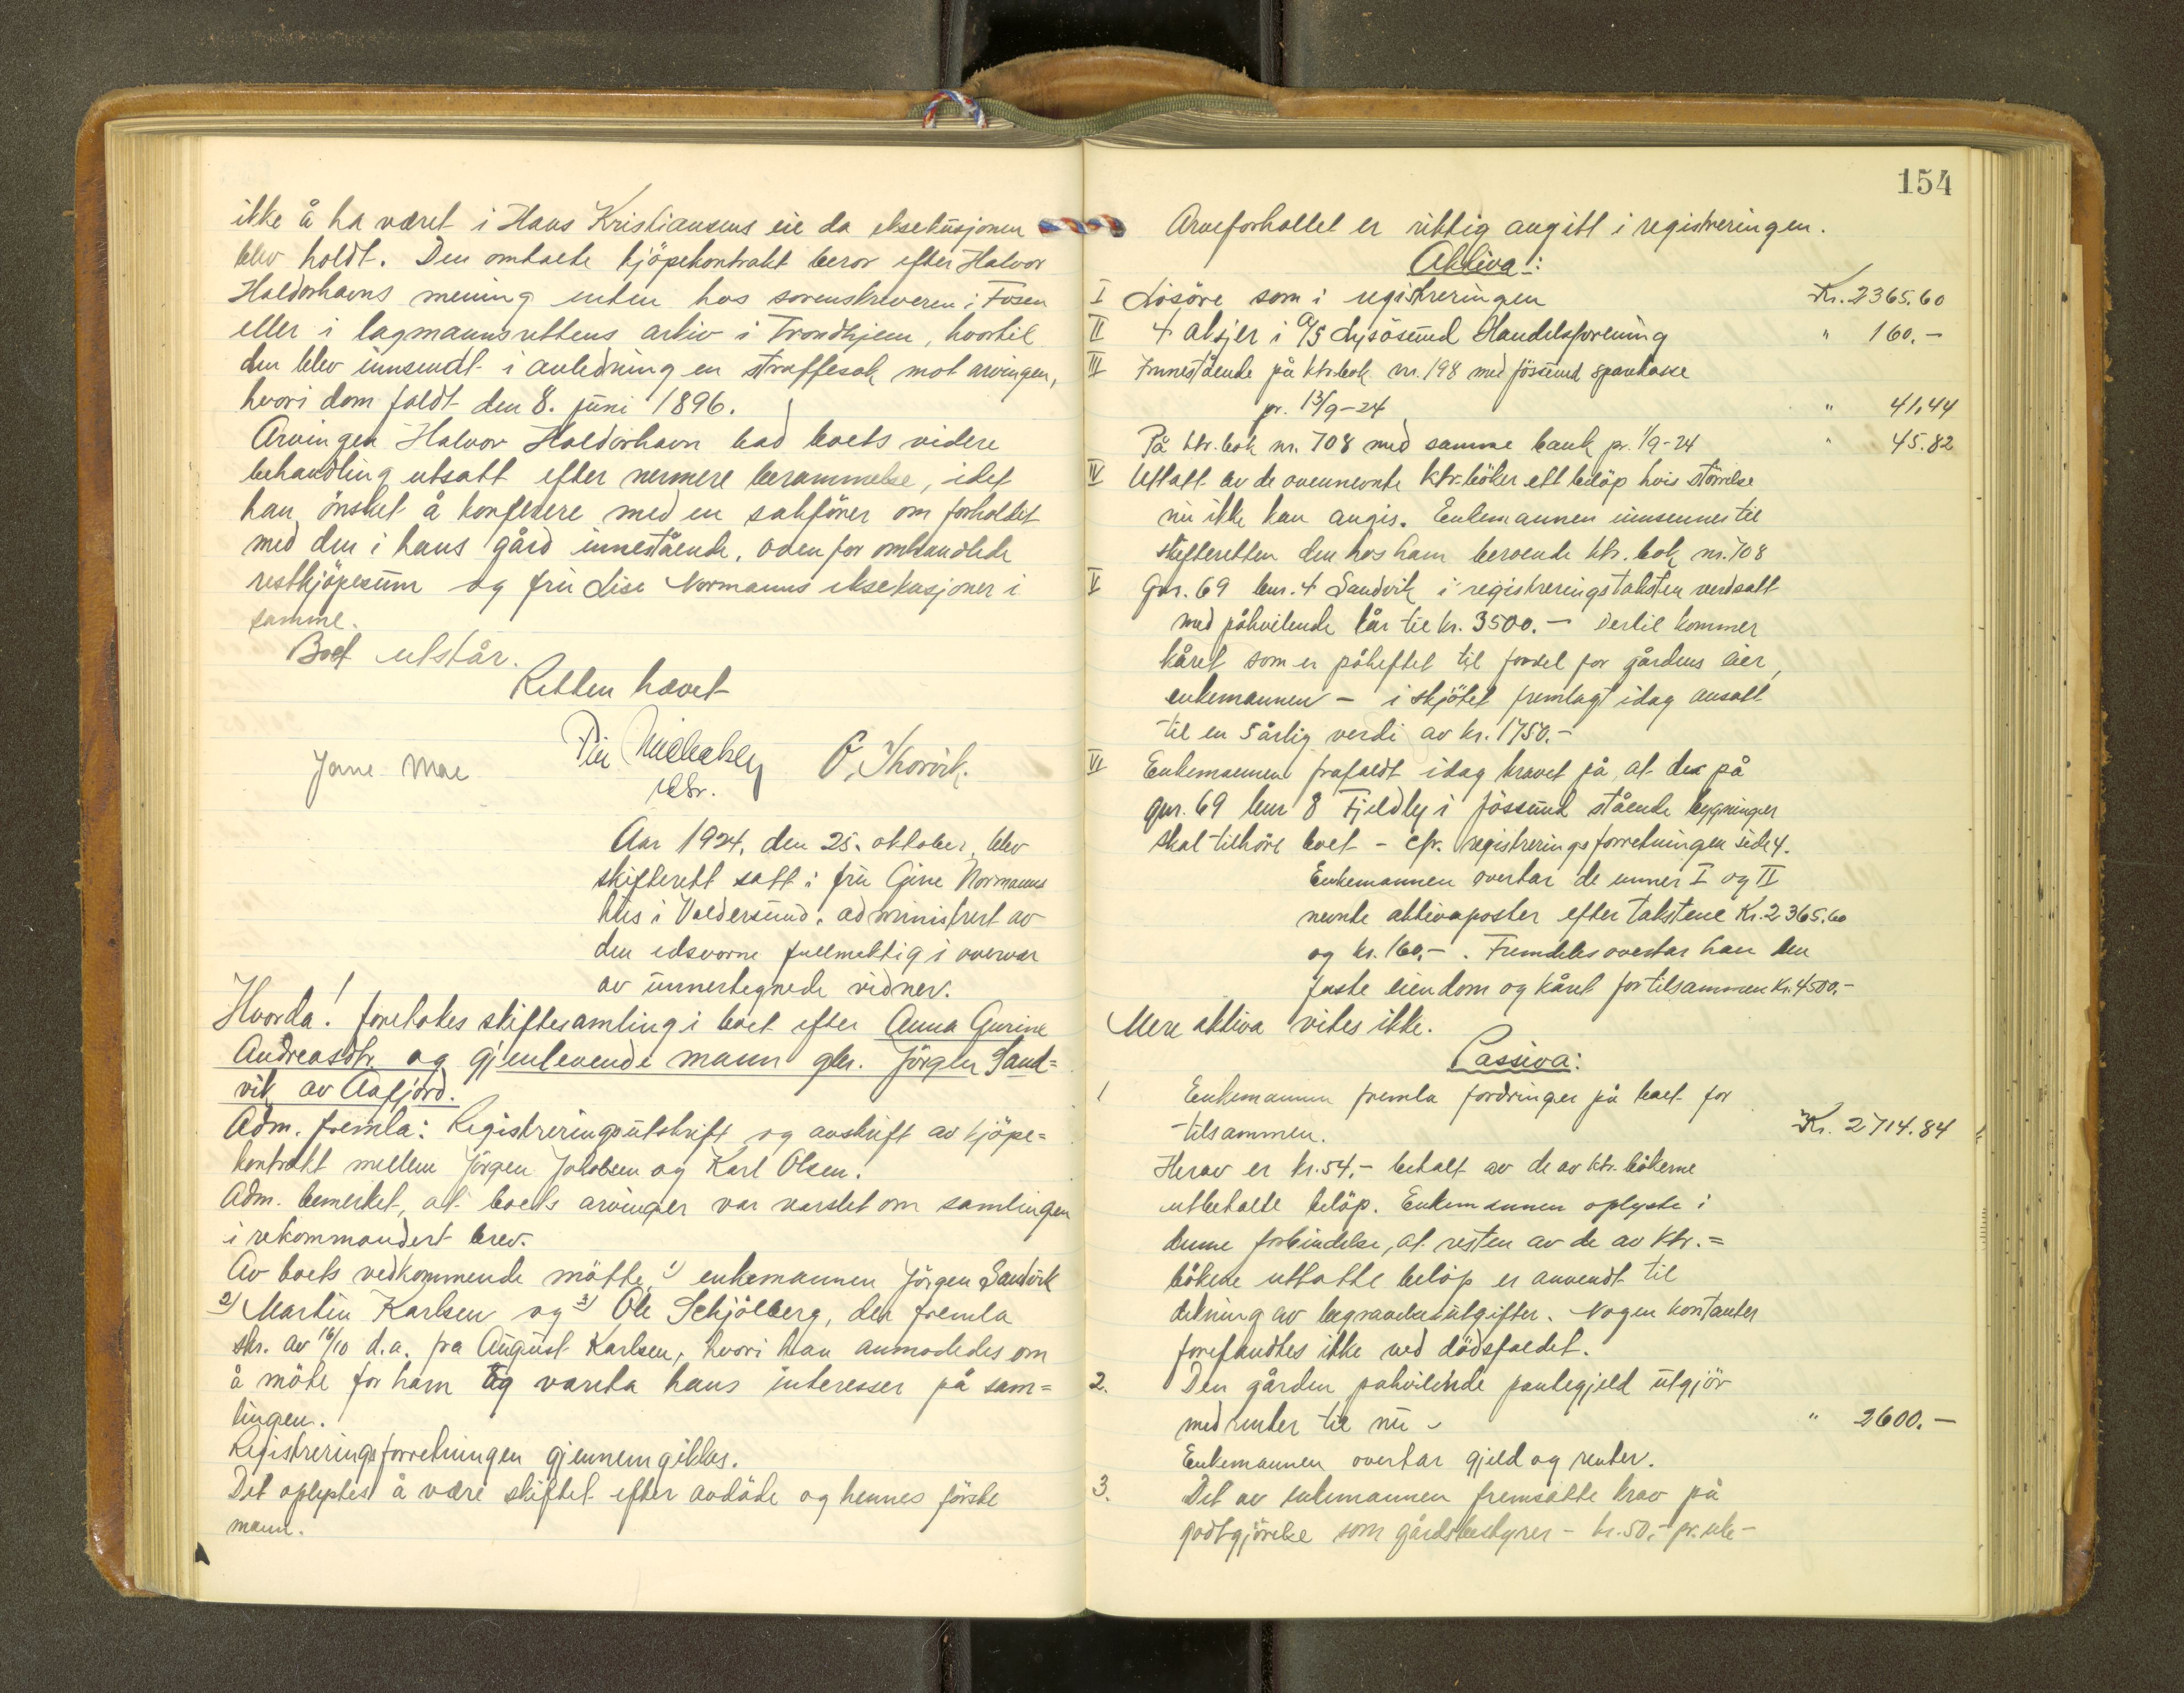 ikke å ha været i Hans Kristiansens eie da eksekusjonen
blev holdt. Den omtalte kjöpekontrakt beror efter Halvor
Haldorhavns mening enten hos sorenskriveren i Fosen
eller i lagmannsrettens arkiv i Trondhjem, hvortil
den blev innsendt i anledning en straffesak mot arvingen,
hvori dom faldt den 8. juni 1896.
Arvingen Halvor Haldorhavn bad boets videre
behandling utsatt efter nermere berammelse, idet
han önsket å konferere med en sakförer om forholdet
med den i hans gård innestående, ovenfor omhandlede
restkjöpesum og fru Lise Normanns eksekusjoner i
samme.
Boet utstår.
Retten hævet
Jone Moe
P. Skorvik.
Aar 1924, den 25. oktober, blev
skifterett satt i fru Gine Normanns
hus i Valdersund, administrert av
den edsvorne fullmektig i overvær
av unnertegnede vidner.
Hvorda! foretokes skiftesamling i boet efter Anna Gurine
Andreasdtr. og gjenlevende mann gbr. Jörgen Sand=
vik av Aafjord.
Adm. fremla: Registreringsutskrift og avskrift av kjöpe=
kontrakt mellem Jörgen Jakobsen og Karl Olsen.
Adm. bemerket, at boets arvinger var varslet om samlingen
i rekommandert brev.
Av boets vedkommende mötte 1) enkemannen Jörgen Sandvik
2) Martin Karlsen og 3) Ole Schjölberg, der fremla
skr. av 16/10 d.a. fra August Karlsen, hvori han anmodedes om
å möte for ham og vareta hans interesser på sam=
lingen.
Registreringsforretningen gjennemgikkes.
Det oplystes å være skiftet efter avdöde og hennes förste
mann.
154
Arveforholdet er riktig angitt i registreringen.
Aktiva:
I Lösöre som i registreringen Kr. 2365.60
II 4 aksjer i A/S Lysösund Handelsforening " 160.-
III Innestående på ktr.bok nr. 198 med Jössund sparkasse
pr. 13/9-24 " 41,44
På ktr.bok nr. 708 med samme bank pr. 1/9-24 " 45.82
IV Uttatt av de ovennevnte ktr.böker ett belöp hvis störrelse
nu ikke kan angis. Enkemannen innsennes til
skifteretten den hos ham beroende ktr.bok nr. 708
V Gnr. 69 bnr. 4 Sandvik i registreringstaksten verdsatt
med påhvilende kår til kr. 3500.- Dertil kommer
kåret som er påheftet til fordel for gårdens eier,
enkemannen - i skjötet fremlagt idag ansatt
til en 5 årlig verdi av kr. 1750.-
VI Enkemannen frafaldt idag kravet på, at de på
gnr. 69 bnr 8 Fjeldly i Jössund stående bygninger
skal tilhöre boet - cfr. registreringsforretningen side 4.
Enkemannen overtar de unner I og II
nevnte aktivaposter efter takstene Kr. 2365.60
og kr. 160,-. Fremdeles overtar han den
faste eiendom og kåret for tilsammen Kr. 4500,-
Mere aktiva vites ikke.
Passiva:
1 Enkemannen fremla fordringer på boet for
tilsammen. Kr. 2714.84
Herav er kr. 54,- betalt av de av ktr.bökerne
utbetalte belöp. Enkemannen oplyste i
denne forbindelse, at resten av de av ktr.=
bökene uttatte belöp er anvendt til
dekning av begravelsesutgifter. Nogen kontanter
forefandtes ikke ved dödsfaldet.
2. Den gården påhvilende pantegjeld utgjör
med renter til nu - " 2600.-
Enkemannen overtar gjeld og renter.
3. Det av enkemannen fremsatte krav på
godtgjörelse som gårdsbestyrer - kr. 50,- pr. uke -